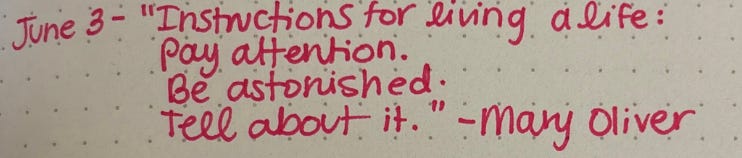 June 3 - "Instructions for living a life:
Pay attention.
Be astonished.
Tell about it." - Mary Oliver